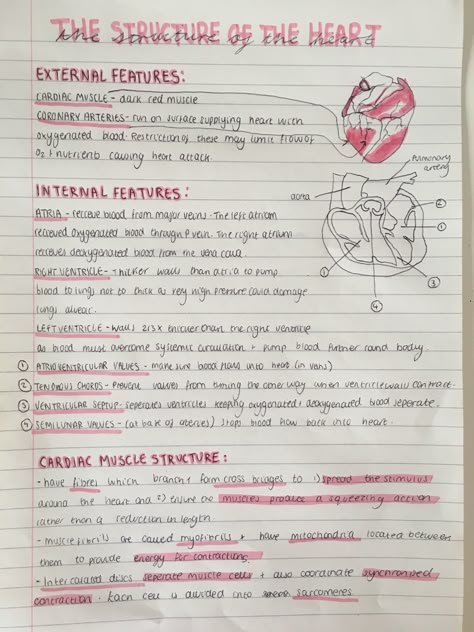 THE STRUCTURE OF THE HEART
the structure of the heart
EXTERNAL FEATURES:
CARDIAC MUSCLE - dark red muscle
CORONARY ARTERIES - run on surface supplying heart with
oxygenated blood. Restriction of these may limit flow of
O2 + nutrients causing heart attack.
Pulmonary
artery
aorta
INTERNAL FEATURES:
ATRIA - recieve blood from major veins. The left atrium
recieved oxygenated blood through P vein. The right atrium
recieves deoxygenated blood from the vena cava.
RIGHT VENTRICLE - thicker walls than atria to pump
blood to lungs not to thick as very high pressure could damage
lungs alveoar.
LEFT VENTRICLE - walls 2/3x thicker than the right ventricle
as blood must overcome systemic circulation + pump blood further round body.
① ATRIOVENTRICULAR VALVES - make sure blood flows into heart (in vans)
② TENDONOUS CHORDS - Prevent valves from turning the other way when ventricle wall contract.
③ VENTRICULAR SEPTUP - seperates ventricles keeping oxygenated + deoxygenated blood seperate.
④ SEMILUNAR VALVES - (at base of arteries) stops blood flow back into heart.
② 
① 
① 
③ 
④ 
CARDIAC MUSCLE STRUCTURE:
- have fibres which branch + form cross bridges to 1) spread the stimulus
around the heart and 2) ensure the muscles produce a squeezing action
rather than a reduction in length.
- muscle fibrils are called myofibrils + have mitochondria located between
them to provide energy for contractions.
- Intercalated discs seperate muscle cells + also coordinate synchronised
contraction. Each cell is divided into sarcomeres